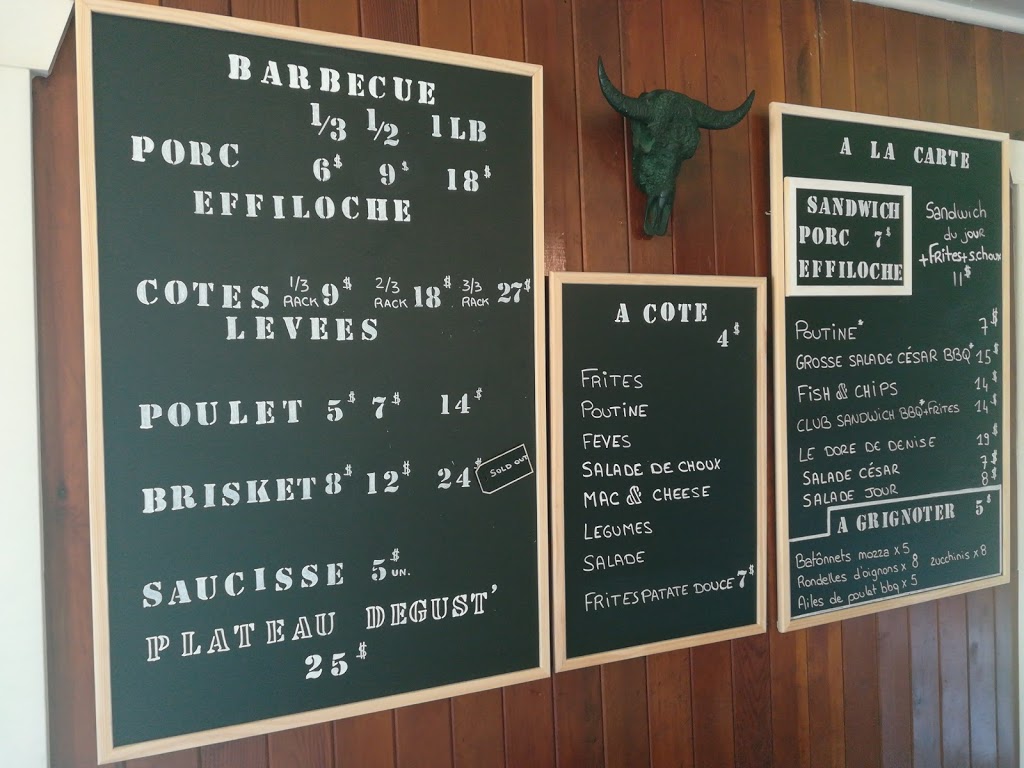 BARBECUE
1/3 1/2 1LB
PORC 6$ 9$ 18$
EFFILOCHE
COTES 1/3 RACK 9$ 2/3 RACK 18$ 3/3 RACK 27$
LEVEES
POULET 5$ 7$ 14$
BRISKET 8$ 12$ 24$ SOLD OUT
SAUCISSE 5$ UN.
PLATEAU DEGUST'
25$
A COTE
4$
FRITES
POUTINE
FEVES
SALADE DE CHOUX
MAC & CHEESE
LEGUMES
SALADE
FRITES PATATE DOUCE 7$
A LA CARTE
SANDWICH
PORC 7$
EFFILOCHE
Sandwich
du jour
+Frites+s.choux
11$
POUTINE* 7$
GROSSE SALADE CÉSAR BBQ* 15$
FISH & CHIPS 14$
CLUB SANDWICH BBQ*+FRITES 14$
LE DORE DE DENISE 19$
SALADE CÉSAR 7$
SALADE JOUR 8$
A GRIGNOTER 5$
Batônnets mozza x 5
Rondelles d'oignons x 8 zucchinis x 8
Ailes de poulet bbq x 5